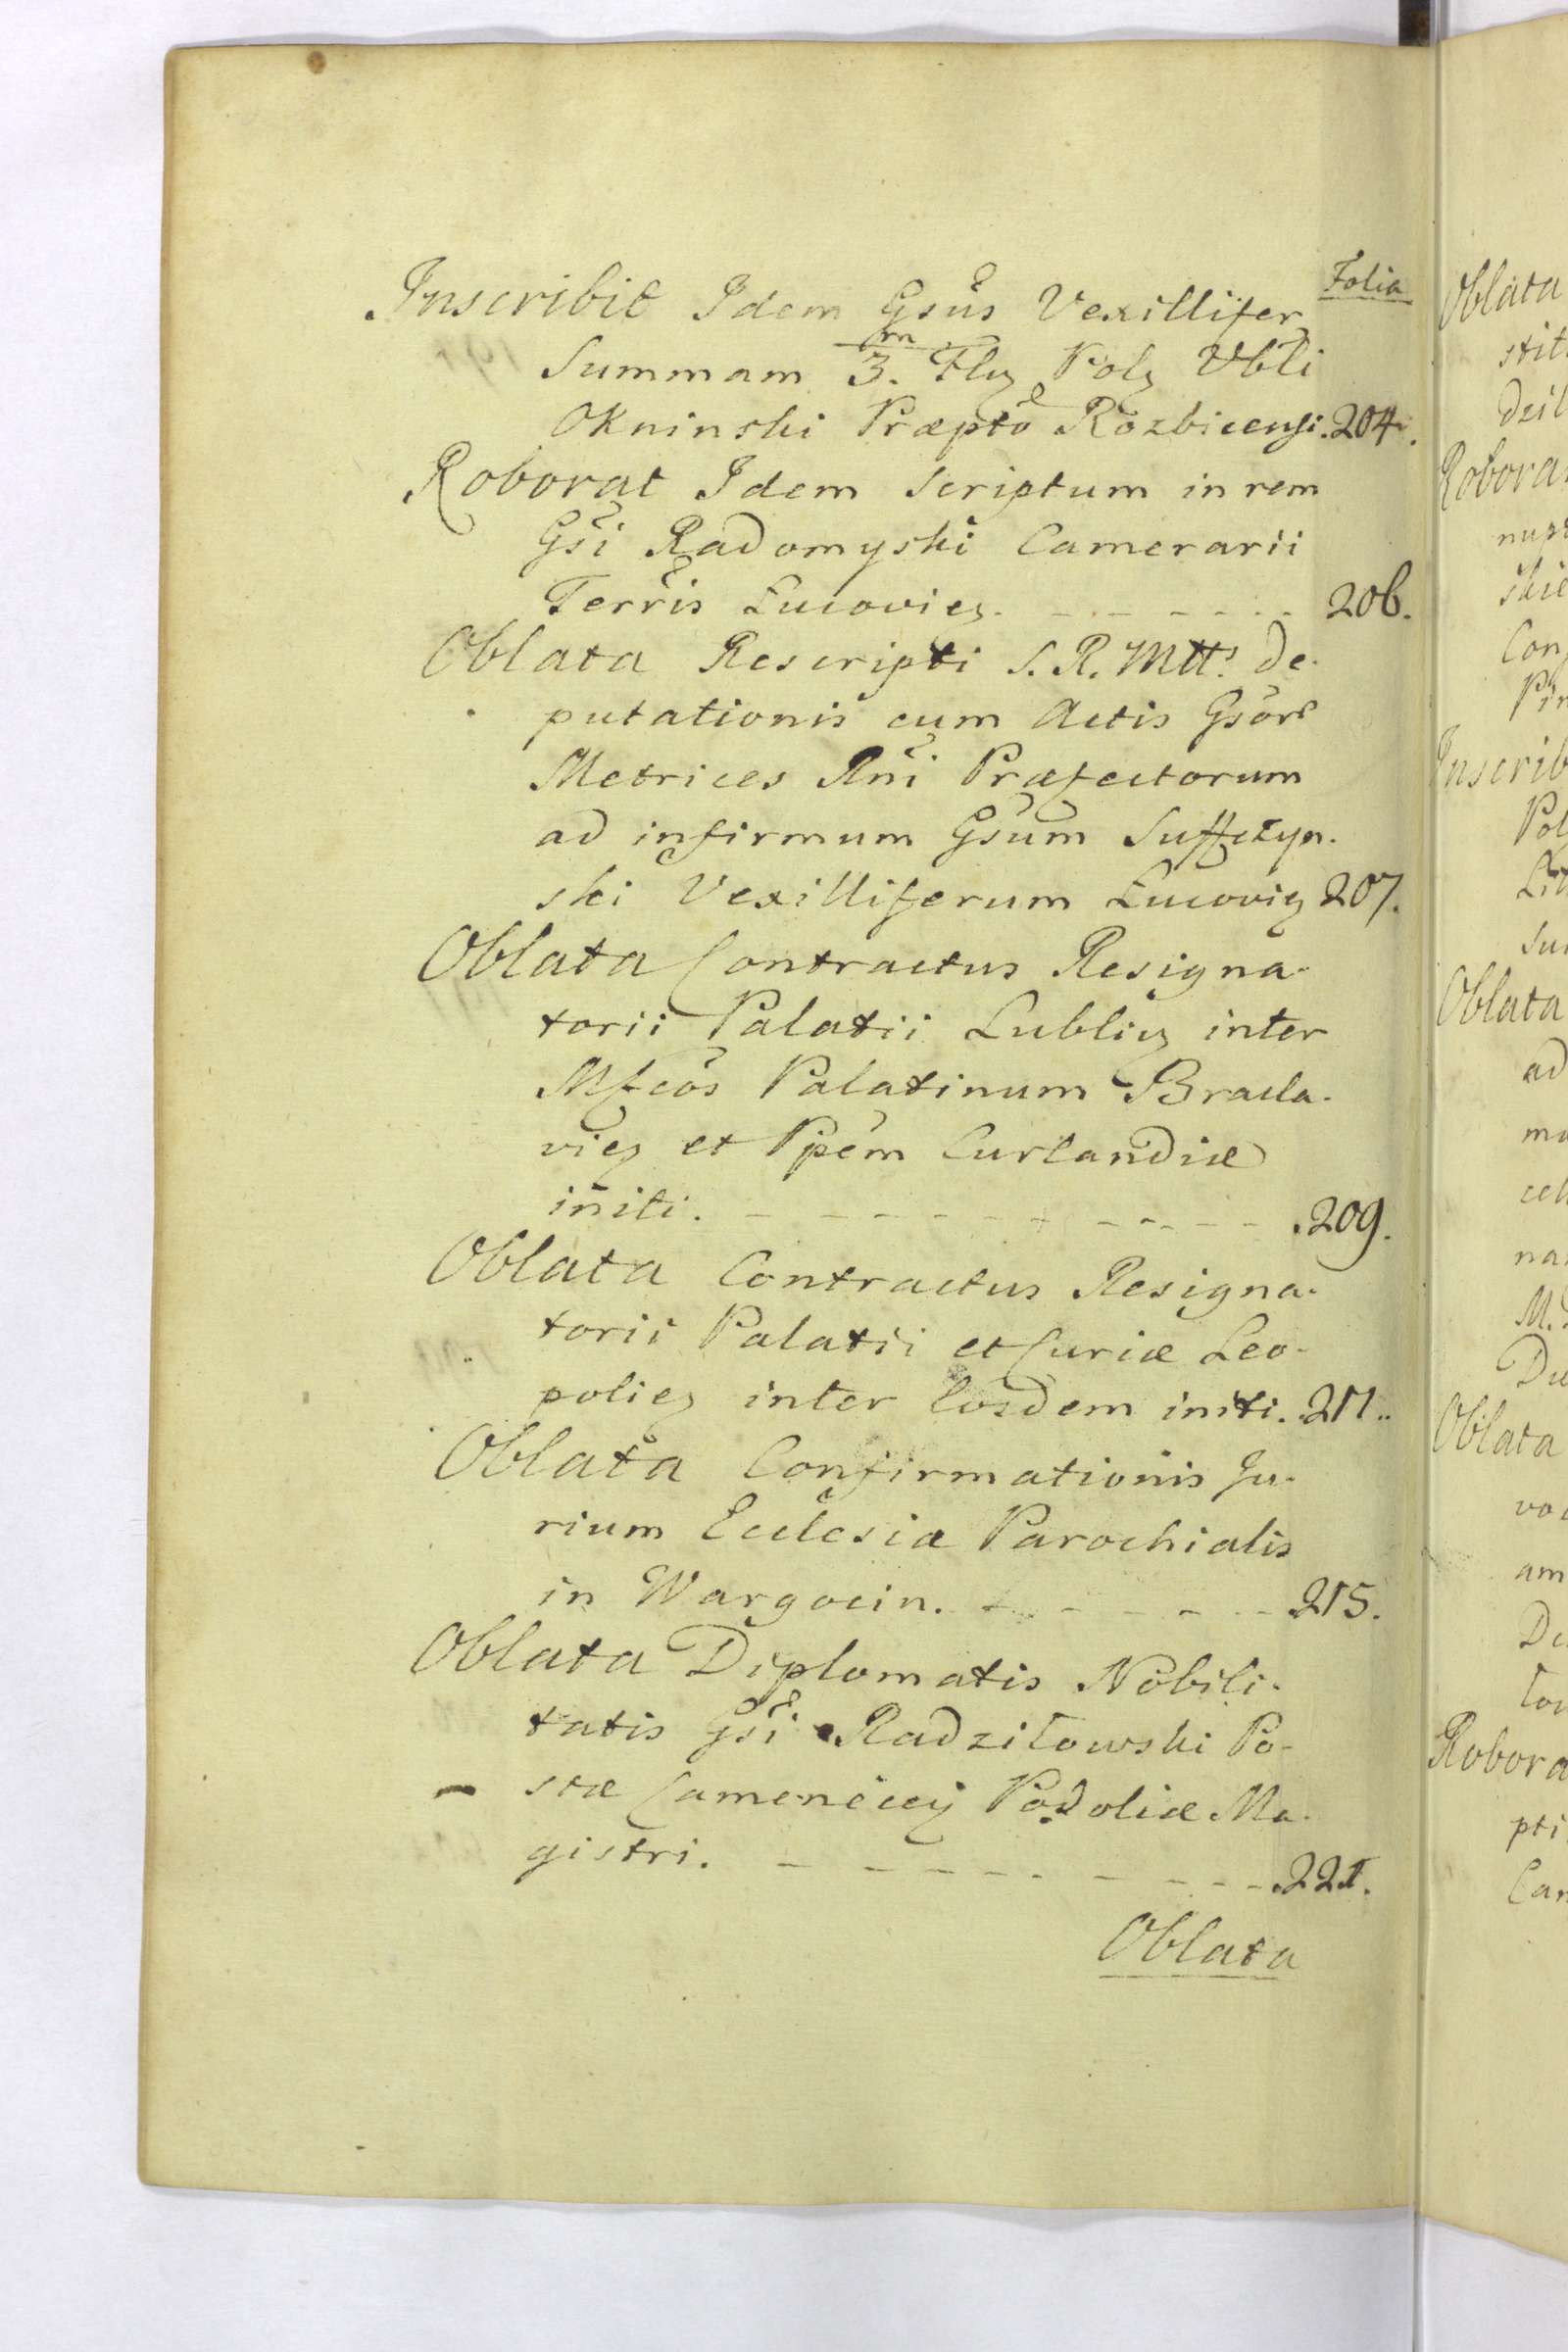 Folia
Inscribit Idem Gsus Vexillifer
Summam 3.m Flg Polg Vbli
Okninski Præpto Rozbicensi. 204.
Roborat Idem Scriptum in rem
Gsi Radomyski Camerarii
Terris Lucovieg. - - - - - 206.
Oblata Rescripti S. R. Mtts. de-
putationis cum Actis Gsor
Metrices Rni Præfectorum
ad infirmum Gsum Suffczyn-
ski Vexilliferum Lucovig 207.
Oblata Contractus Resigna-
torii Palatii Lublig inter
Mfcos Palatinum Bracla-
vieg et Ppem Curlandiæ
initi. - - - - - - - - - .209.
Oblata Contractus Resigna-
torii Palatii et Curiæ Leo-
polieg inter Eosdem initi. 211.
Oblata Confirmationis Ju-
rium Ecclesiæ Parochialis
in Wargocin. - - - - - 215.
Oblata Diplomatis Nobili-
tatis Gsi Radziłowski Po-
stæ Camenecig Podoliæ Ma-
gistri. - - - - - - - - .221.
Oblata
Oblata
Robora
Inscrib
Oblata
ad
Oblata
am
Robora
pti